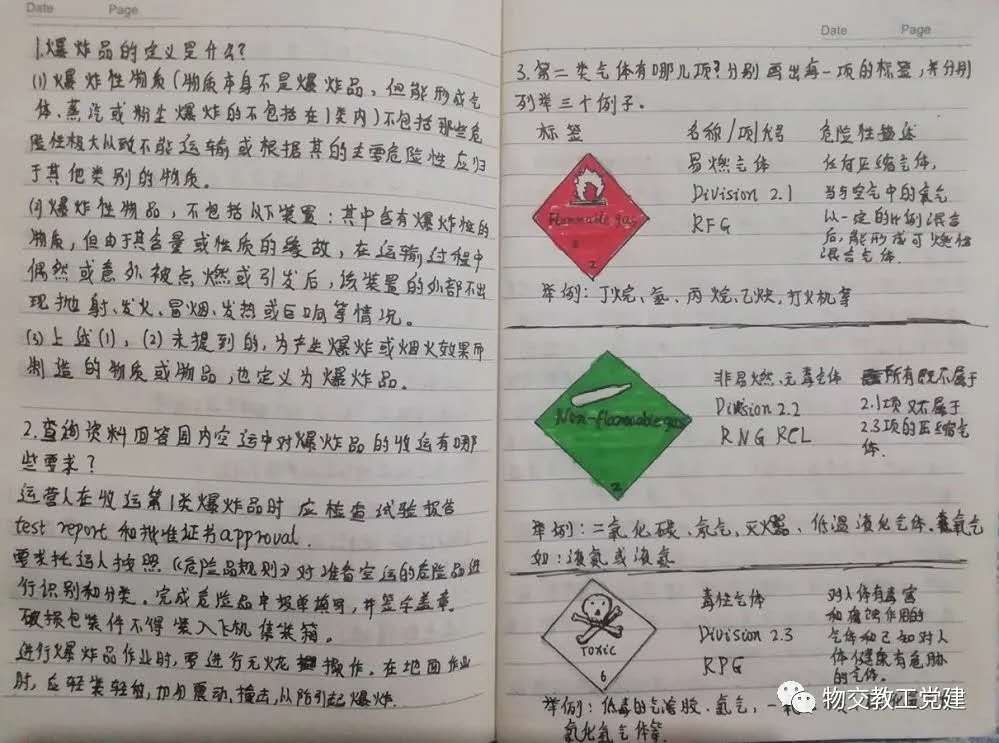 Date Page
1.爆炸品的定义是什么?
(1)爆炸性物质(物质本身不是爆炸品,但能形成气
体、蒸汽或粉尘爆炸的不包括在1类内)不包括那些危
险性极大以致不能运输或根据其的主要危险性应归
于其他类别的物质。
(2)爆炸性物品,不包括以下装置:其中含有爆炸性的
物质,但由于其含量或性质的缘故,在运输过程中
偶然或意外被点燃或引发后,该装置的外部不出
现抛射、发火、冒烟、发热或巨响等情况。
(3)上述(1),(2)未提到的,为产生爆炸或烟火效果而
制造的物质或物品,也定义为爆炸品。
2.查询资料回答国内空运中对爆炸品的收运有哪
些要求?
运营人在收运第1类爆炸品时应检查试验报告
test report 和批准证书approval.
要求托运人按照《危险品规则》对准备空运的危险品进
行识别和分类.完成危险品申报单填写,并签字盖章.
破损包装件不得装入飞机集装箱。
进行爆炸品作业时,要进行无火花操作.在地面作业
时,应轻装轻卸,加 震动、撞击,以防引起爆炸.
Date Page
3.第二类气体有哪几项?分别画出每一项的标签,并分别
列举三个例子.
标签 名称/项/代码 危险性描述
易燃气体 任何压缩气体,
Division 2.1 当与空气中的氧气
RFG 以一定的比例混合
后,能形成可燃性
混合气体.
Flammable gas
2
举例:丁烷、氢、丙烷、乙炔,打火机等
非易燃、无毒气体 所有既不属于
Division 2.2 2.1项又不属于
RNG RCL 2.3项的压缩气
体.
Non-flammable gas
2
举例:二氧化碳、氖气,灭火器、低温液化气体、氧气
如:液氮或液氦
毒性气体 对人体有毒害
Division 2.3 和腐蚀作用的
RPG 气体和已知对人
体健康有危胁
的气体.
Toxic
6
举例:低毒的气溶胶、氯气,一氧
氧化氮气体等.
物交教工党建